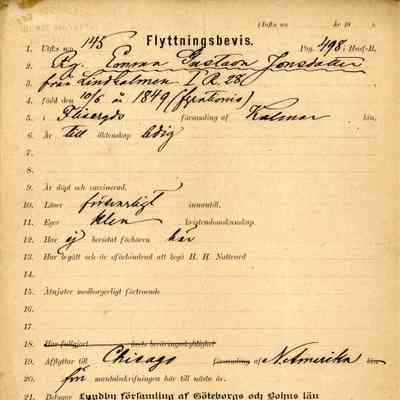 (Infts no År 18 ).
Flyttningsbevis.
1. Utfts no 145 Pag. 498 i Husf-B.
2. Emma Gustava Jonsdotter
3. från Lindholmen I R. 28
4. född den 10/6 år 1849
5. i församling af Kalmar län,
6. Är till äktenskap ledig
7.
8.
9. Är döpt och vaccinerad,
10. Läser försvarligt innantill,
11. Eger klen kristendomskunskap.
12. Har ej bevistat förhören här
13. Har begått och är oförhindrad att begå H. H. Nattvard
14.
15. Åtnjuter medborgerligt förtroende
16.
17.
18. Har fullgjort årets beväringsskyldighet
19. Afflyttar till Chicago församling af N. Amerika län
20. för mantalsskrifningen här till nästa år.
21. Betygar Lundby församling af Göteborgs och Bohus län